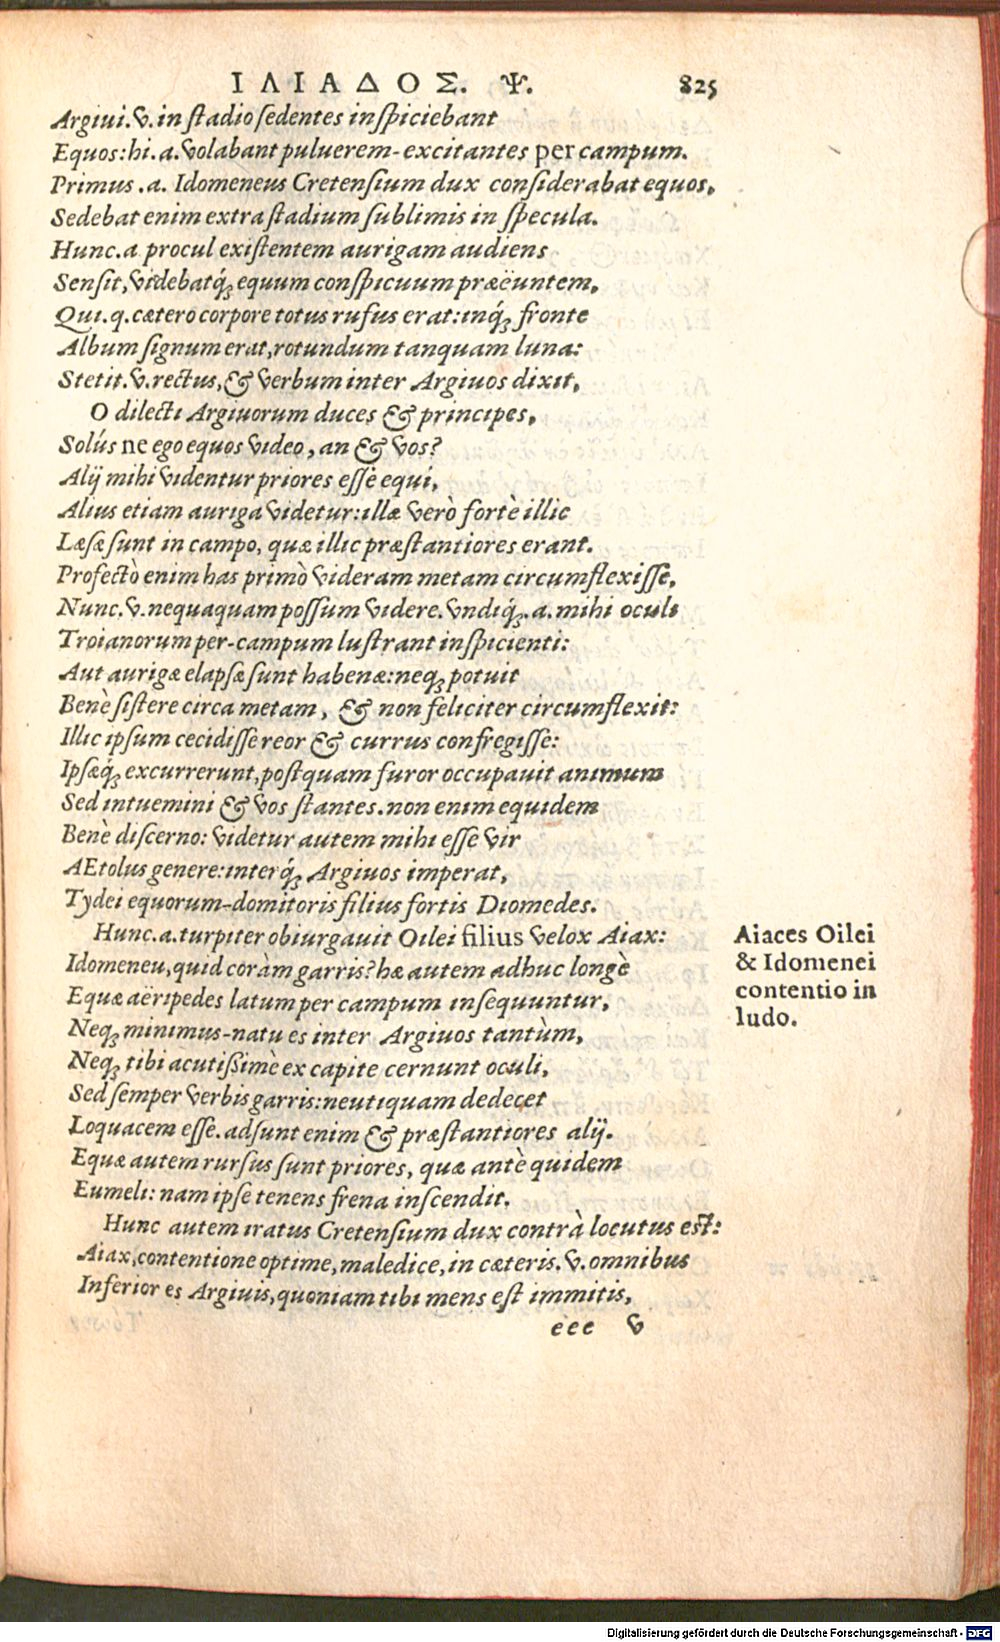 ΙΛΙΑΔΟΣ. Ψ. 825
Argiui.v.in stadio sedentes inspiciebant
Equos:hi.a.volabant puluerem-excitantes per campum.
Primus.a. Idomeneus Cretensium dux considerabat equos,
Sedebat enim extra stadium sublimis in specula.
Hunc.a procul existentem aurigam audiens
Sensit, videbatq́; equum conspicuum præëuntem,
Qui.q.cætero corpore totus rufus erat:inq́; fronte
Album signum erat,rotundum tanquam luna:
Stetit.v.rectus,& verbum inter Argiuos dixit,
O dilecti Argiuorum duces & principes,
Solús ne ego equos video, an & vos?
Alij mihi videntur priores esse equi,
Alius etiam auriga videtur:illæ verò fortè illic
Læsæ sunt in campo, quæ illic præstantiores erant.
Profectò enim has primò videram metam circumflexisse,
Nunc.v.nequaquam possum videre.vndiq́;.a.mihi oculi
Troianorum per-campum lustrant inspicienti:
Aut aurigæ elapsæ sunt habenæ:neq; potuit
Benè sistere circa metam, & non feliciter circumflexit:
Illic ipsum cecidisse reor & currus confregisse:
Ipsæq́; excurrerunt,postquam furor occupauit animum
Sed intuemini & vos stantes.non enim equidem
Benè discerno: videtur autem mihi esse vir
AEtolus genere:interq́; Argiuos imperat,
Tydei equorum-domitoris filius fortis Diomedes.
Hunc.a.turpiter obiurgauit Oilei filius velox Aiax:
Idomeneu,quid coràm garris?hæ autem adhuc longè
Equæ aëripedes latum per campum insequuntur,
Neq; minimus-natu es inter Argiuos tantùm,
Neq; tibi acutißimè ex capite cernunt oculi,
Sed semper verbis garris:neutiquam dedecet
Loquacem esse.adsunt enim & præstantiores alij.
Equæ autem rursus sunt priores, quæ antè quidem
Eumeli: nam ipse tenens frena inscendit.
Hunc autem iratus Cretensium dux contrà locutus est:
Aiax,contentione optime,maledice,in cæteris.v.omnibus
Inferior es Argiuis,quoniam tibi mens est immitis,
eee v
Aiaces Oilei
& Idomenei
contentio in
ludo.
Digitalisierung gefördert durch die Deutsche Forschungsgemeinschaft - DFG